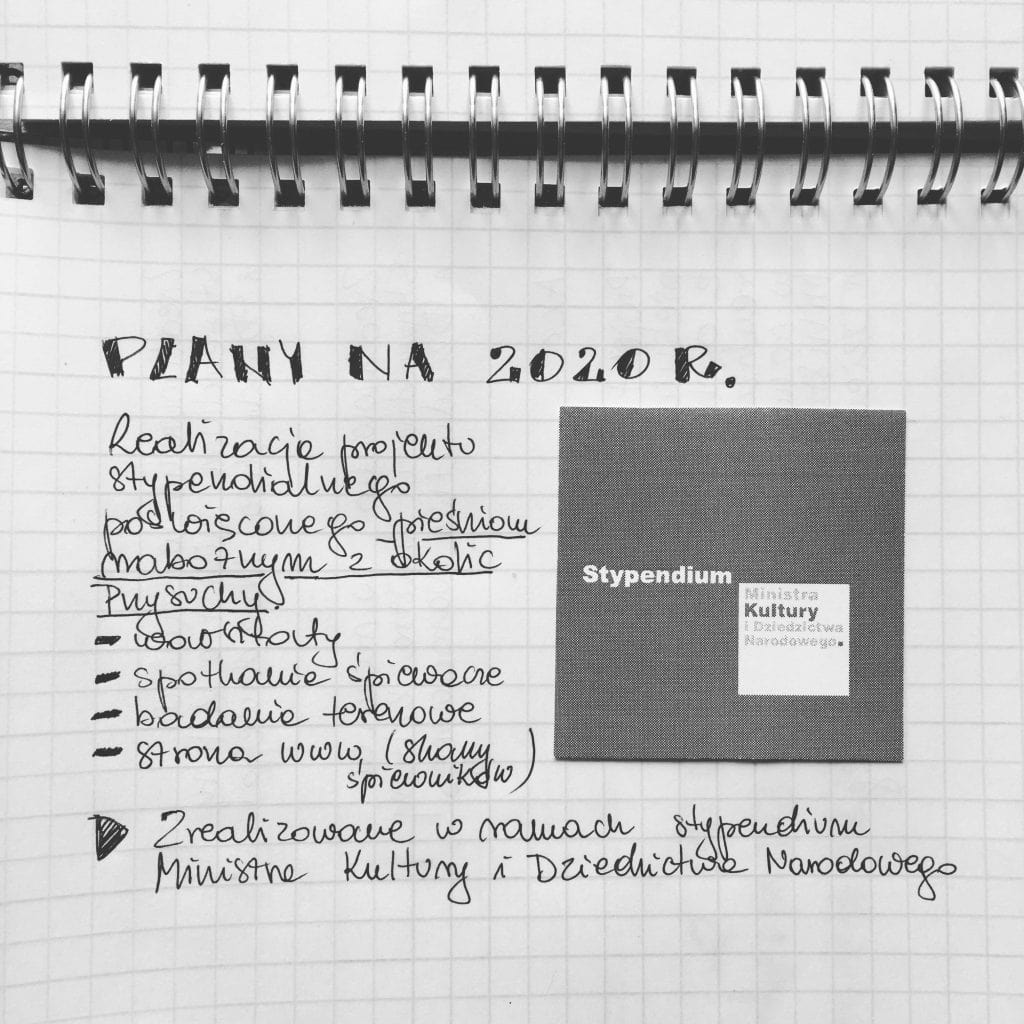 PLANY NA 2020 R.
Realizacja projektu
stypendialnego
poświęconego pieśniom
nabożnym z okolic
Przysuchy:
- warsztaty
- spotkanie śpiewacze
- badania terenowe
- strona www (skany
śpiewników)
Zrealizowane w ramach stypendium
Ministra Kultury i Dziedzictwa Narodowego
Stypendium
Ministra
Kultury
i Dziedzictwa
Narodowego.